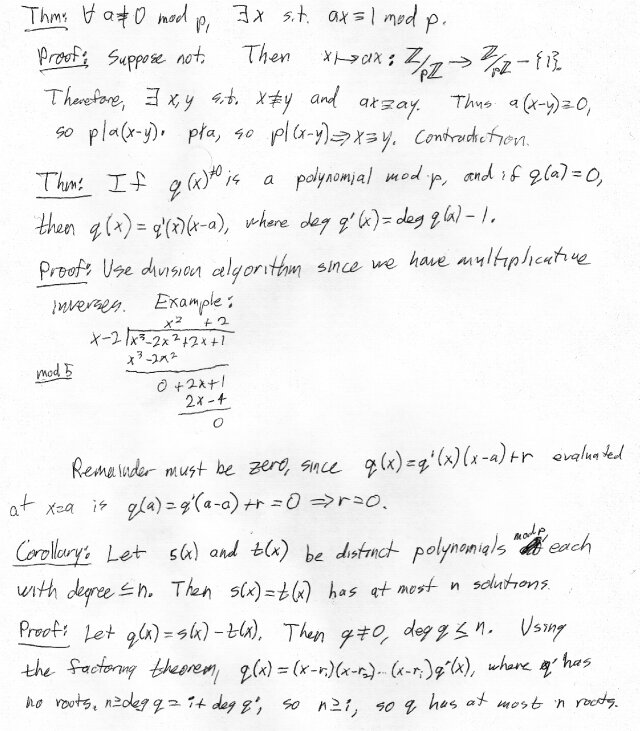 Thm: ∀ a≢0 mod p, ∃x s.t. ax≡1 mod p.
Proof: Suppose not. Then x↦ax: ℤ/pℤ → ℤ/pℤ - {1}.
Therefore, ∃ x,y s.t. x≢y and ax≡ay. Thus a(x-y)≡0,
so p|a(x-y). p∤a, so p|(x-y)⇒x≡y. Contradiction.
Thm: If q(x)≠0 is a polynomial mod p, and if q(a)=0,
then q(x)=q'(x)(x-a), where deg q'(x)=deg q(x)-1.
Proof: Use division algorithm since we have multiplicative
inverses. Example:
x² + 2
x-2 | x³-2x²+2x+1
x³-2x²
mod 5
0 + 2x+1
2x-4
0
Remainder must be zero, since q(x)=q'(x)(x-a)+r evaluated
at x=a is q(a)=q'(a-a)+r=0 ⇒r=0.
Corollary: Let s(x) and t(x) be distinct polynomials mod p each
with degree ≤n. Then s(x)=t(x) has at most n solutions.
Proof: Let q(x)=s(x)-t(x). Then q≠0, deg q≤n. Using
the factoring theorem, q(x)=(x-r₁)(x-r₂)...(x-rᵢ)q'(x), where q' has
no roots. n≥deg q = i+deg q', so n≥i, so q has at most n roots.